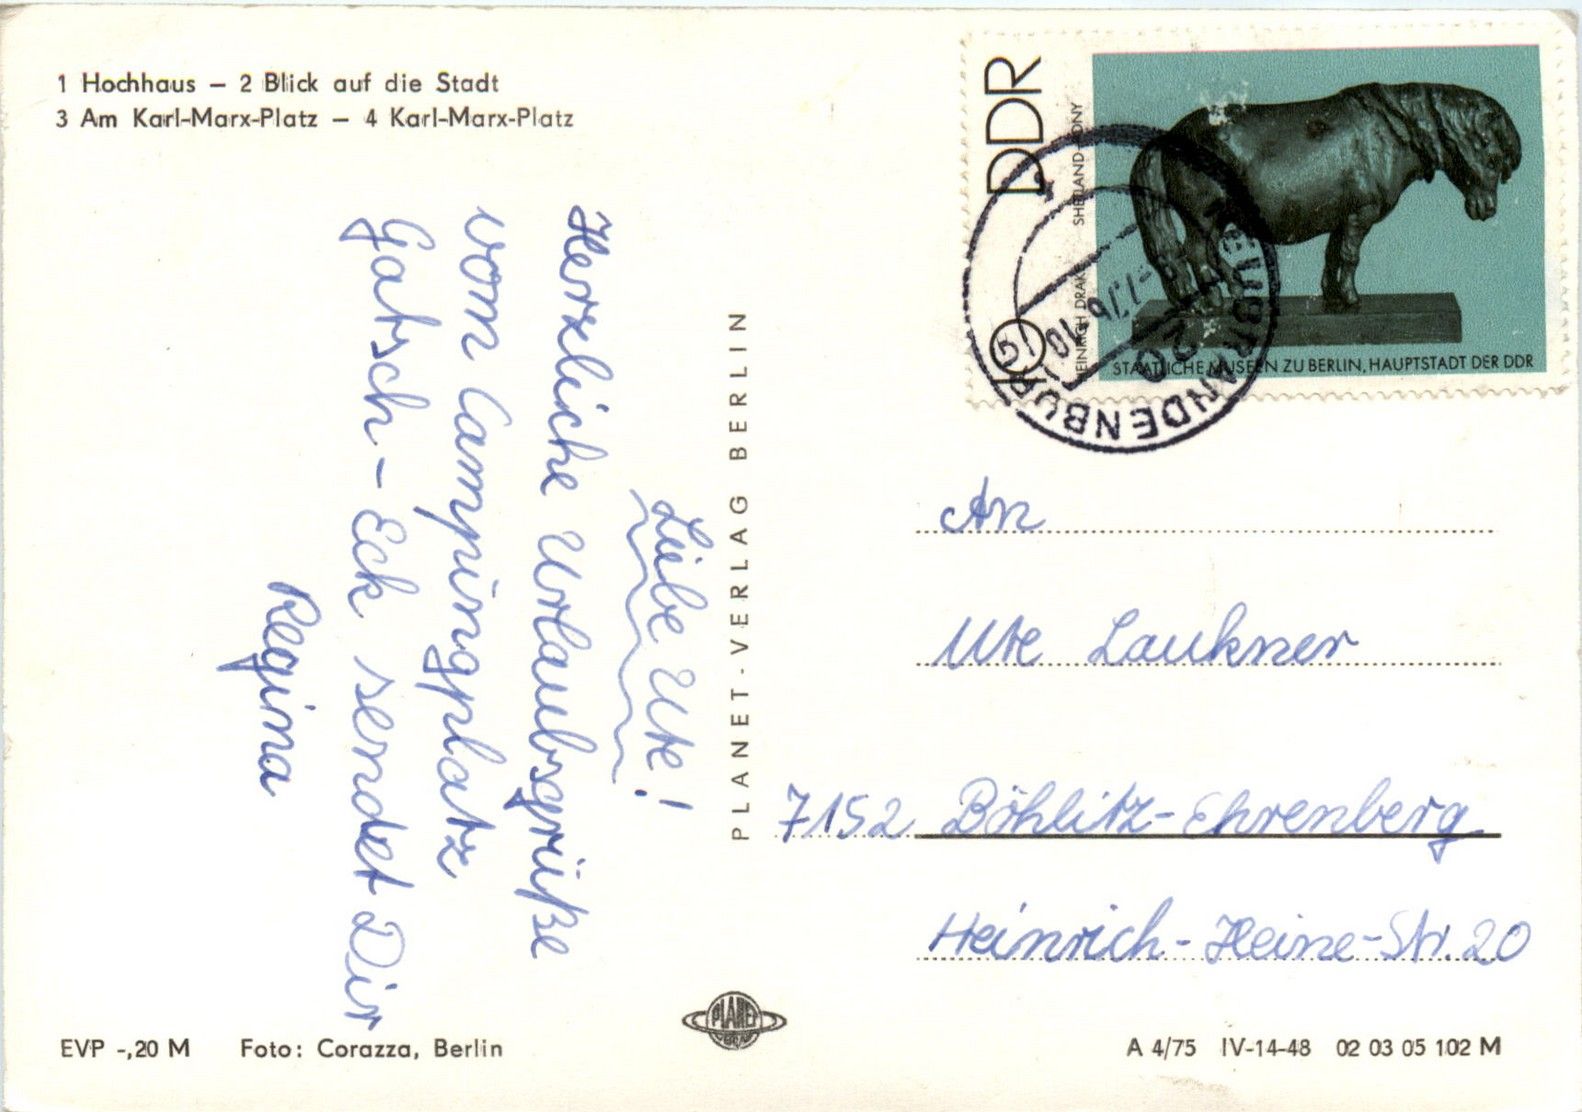 1 Hochhaus – 2 Blick auf die Stadt
3 Am Karl-Marx-Platz – 4 Karl-Marx-Platz
Liebe Ute!
Herzliche Urlaubsgrüße
vom Campingplatz
Gatsch-Eck sendet Dir
Regina
PLANET-VERLAG BERLIN
DDR
HEINRICH DRAKE SHETLAND-PONY
STAATLICHE MUSEEN ZU BERLIN, HAUPTSTADT DER DDR
NEUBRANDENBURG
An
Ute Laukner
7152 Böhlitz-Ehrenberg
Heinrich-Heine-Str. 20
EVP -,20 M Foto: Corazza, Berlin
PLANET
A 4/75 IV-14-48 02 03 05 102 M